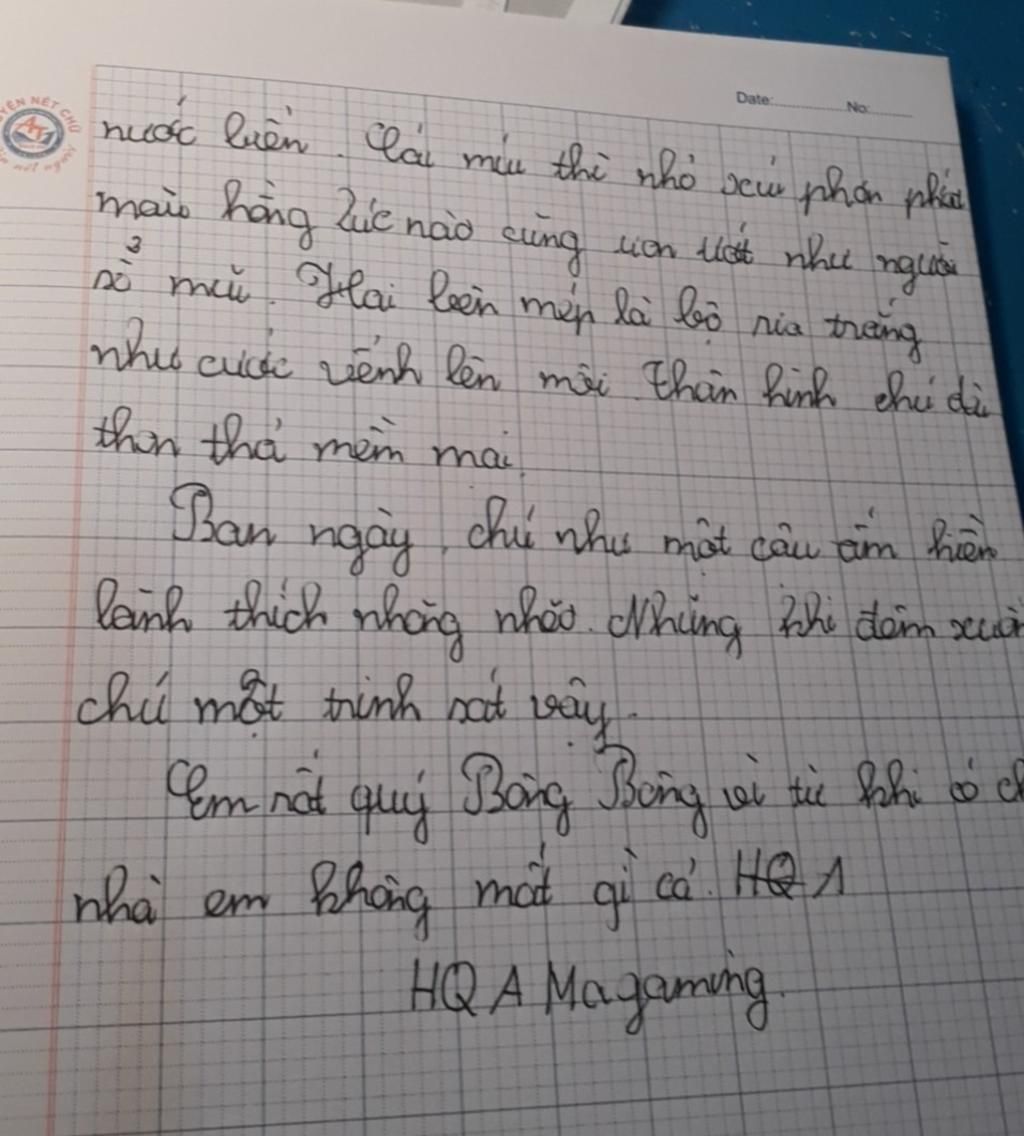 Date: No:
nước luôn. Cái mũi thì nhỏ xíu phơn phớt
màu hồng lúc nào cũng ươn ướt như người
sổ mũi. Hai bên mép là bộ ria trắng
như cước vểnh lên môi. Thân hình chú dài
thon thả mềm mại.
Ban ngày, chú như một cậu ấm hiền
lành thích nhõng nhẽo. Nhưng khi đêm xuống
chú một trinh sát vậy.
Em rất quý Bông Bông vì từ khi có
nhà em không mất gì cả. HQA
HQA Magaming.